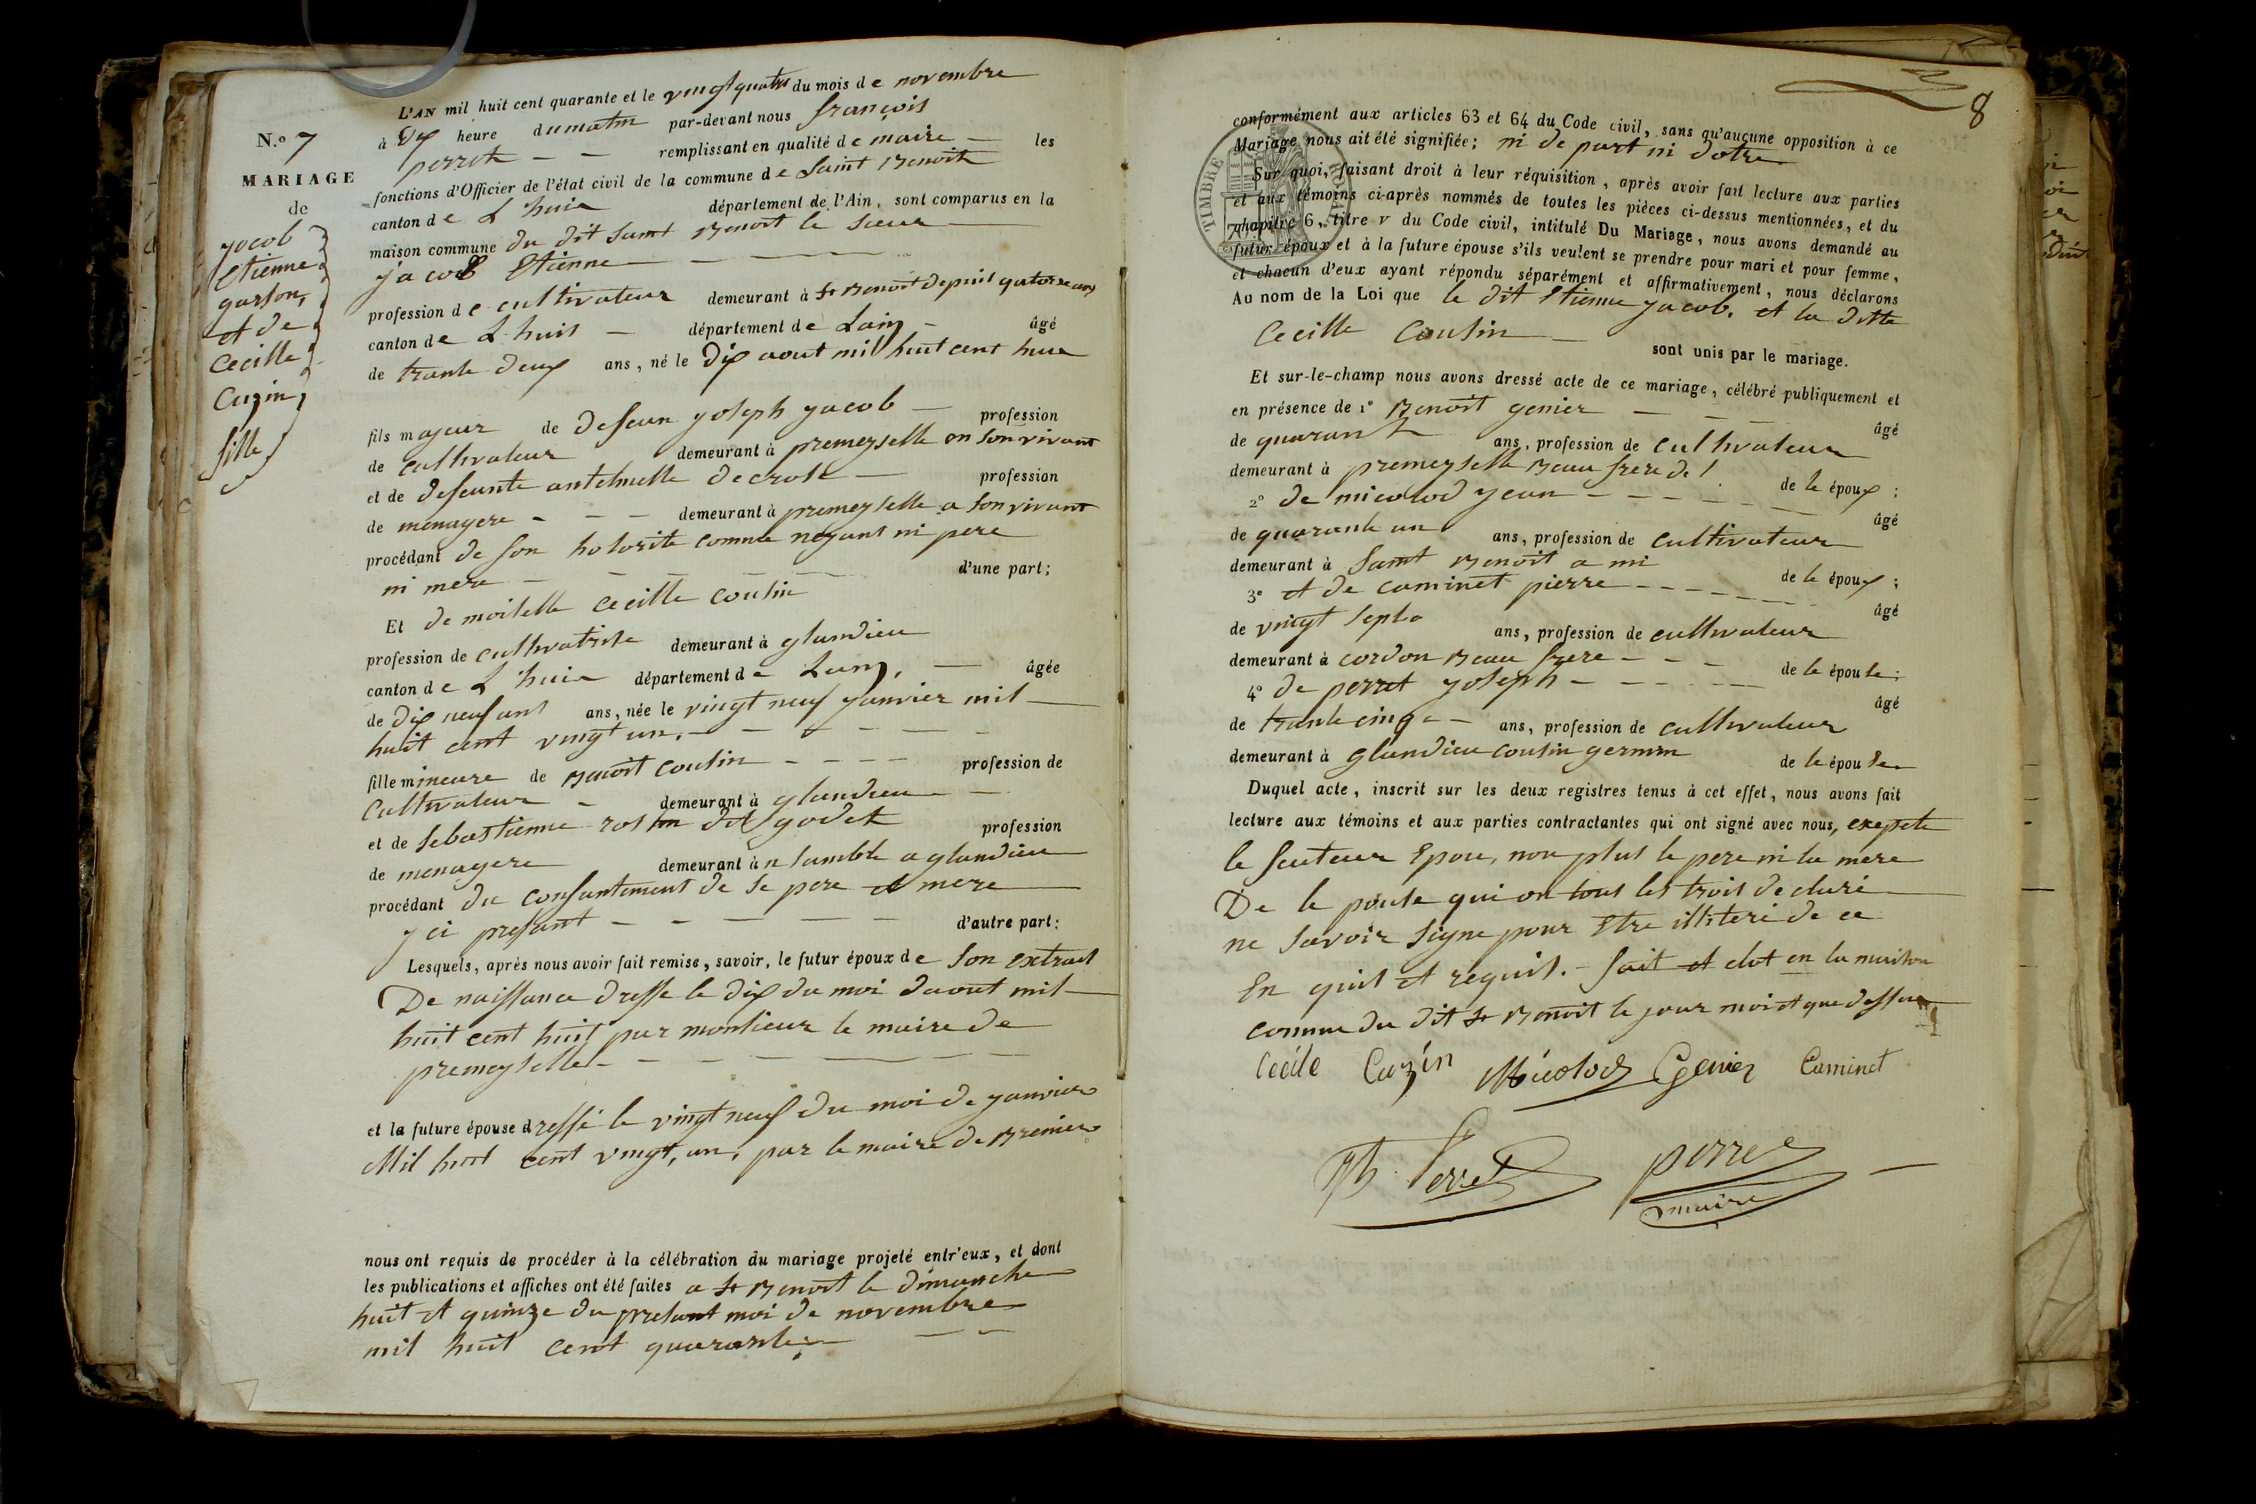 N.o 7
MARIAGE
de
jacob
Etienne
garson,
et de
Cecille
Cuzin,
fille
L'AN mil huit cent quarante et le vingt quatre du mois de novembre
à dix heure du matin par-devant nous françois
perret remplissant en qualité de maire les
fonctions d'Officier de l'état civil de la commune de Saint Benoit
canton de L'huis département de l'Ain, sont comparus en la
maison commune du dit Saint Benoit le sieur
jacob Etienne
profession de cultivateur demeurant à St Benoit depuis quatorze ans
canton de L'huis département de Lain âgé
de trante deux ans, né le dix aout mil huit cent huit
fils majeur de defeun joseph jacob profession
de cultivateur demeurant à premeyselle en son vivant
et de defeunte antelmette decrose profession
de menagere demeurant à premeyselle a son vivant
procédant de son hotorité comme neyant ni pere
ni mere d'une part;
Et demoiselle cecille cousin
profession de cultivatrise demeurant à glandieu
canton de L'huis département de Lain, âgée
de dix neuf ans ans, née le vingt neuf janvier mil
huit cent vingt un.
fille mineure de Benoit cousin profession de
cultivateur demeurant à glandieu
et de sebastienne dit godet profession
de menagere demeurant à nsamble a glandieu
procédant du consantement de se pere et mere
yci presant d'autre part:
Lesquels, après nous avoir fait remise, savoir, le futur époux de son extrait
De naissance dresse le dix du moi daout mil
huit cent huit par monsieur le maire de
premeyselle
et la future épouse dressé le vingt neuf du moi de janvier
Mil huit cent vingt, un, par le maire de Brenier
nous ont requis de procéder à la célébration du mariage projeté entr'eux, et dont
les publications et affiches ont été faites a St Benoit le dimanche
huit et quinze du presant moi de novembre
mil huit cent quarante
8
conformément aux articles 63 et 64 du Code civil, sans qu'aucune opposition à ce
Mariage nous ait été signifiée; ni de part ni dotre
Sur quoi, faisant droit à leur réquisition, après avoir fait lecture aux parties
et aux témoins ci-après nommés de toutes les pièces ci-dessus mentionnées, et du
chapitre 6, titre v du Code civil, intitulé Du Mariage, nous avons demandé au
futur époux et à la future épouse s'ils veulent se prendre pour mari et pour femme,
et chacun d'eux ayant répondu séparément et affirmativement, nous déclarons
Au nom de la Loi que le dit Etienne jacob, et la ditte
Cecille Cousin
sont unis par le mariage.
Et sur-le-champ nous avons dressé acte de ce mariage, célébré publiquement et
en présence de 1° Benoit genier âgé
de quarant ans, profession de cultivateur
demeurant à premeyselle Beau frere de l de le époux;
2° de micolod jean âgé
de quarante un ans, profession de cultivateur
demeurant à Saint Benoit a mi de le époux;
3° et de caminet pierre âgé
de vingt sept ans, profession de cultivateur
demeurant à cordon Beau frere de le épouse;
4° de perret joseph âgé
de trante cinq ans, profession de cultivateur
demeurant à glandieu cousin germin de le épouse
Duquel acte, inscrit sur les deux registres tenus à cet effet, nous avons fait
lecture aux témoins et aux parties contractantes qui ont signé avec nous, exepté
le feuteur Epou, non plus le pere ni la mere
De le pouse qui on tous les trois declaré
ne savoir signe pour Etre illiteré de ce
En quit et requit. fait et clot en la maison
comune du dit St Benoit le jour moi et que dessus
Cécile Cuzin Micolod Genier Caminet
Jh Perret perret
maire
TIMBRE ROYAL